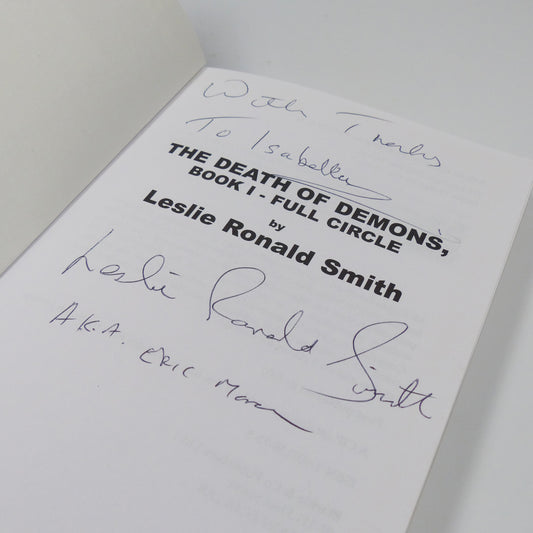 With Thanks
To Isabella
THE DEATH OF DEMONS,
BOOK I - FULL CIRCLE
by
Leslie Ronald Smith
Leslie Ronald Smith
A.K.A. ERIC